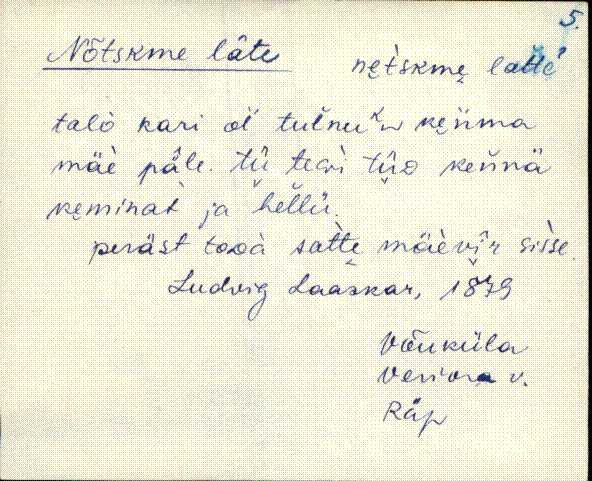 5.
Nõtskme lâte nȩ̀tskmȩ lattè
talò kari oĺ tuĺnu kȩńma
mäè pâle. tû̬ teɢì tû̬ɔ keńnä
kȩminàt ja hellü.
peräst toɔà sàttȩ mäèvî̬r sìsse.
Ludvig Laaskar, 1879
Võuküla
Veriora v.
Räp